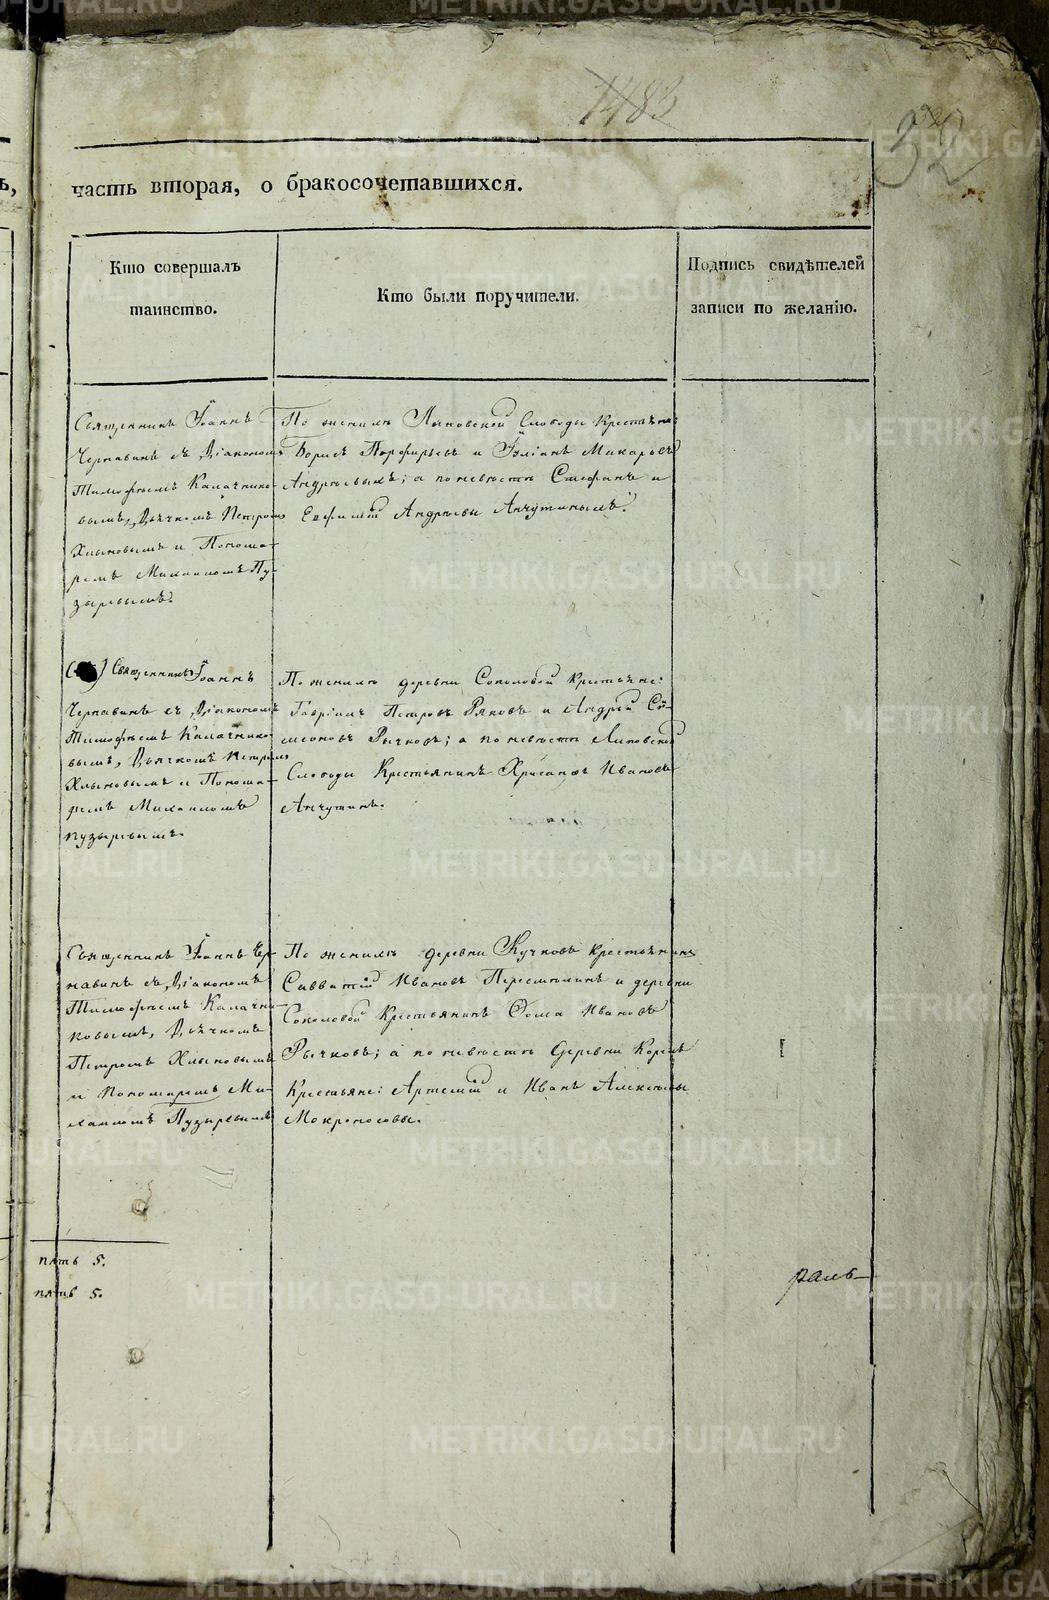 1483
32
часть вторая, о бракосочетавшихся.
Кто совершалъ
таинство.
Кто были поручители.
Подпись свидѣтелей
записи по желанію.
Священникъ Іоаннъ
Чернавинъ съ Діакономъ
Тимофѣемъ Калачнико-
вымъ, Дьячкомъ Петромъ
Хлыновымъ и Понома-
ремъ Михаиломъ Пу-
зыревымъ.
По женихѣ Липовской Слободы Крестьяне:
Борисъ Порфирьевъ и Іуліанъ Макарьевъ
Андреевыхъ; а по невѣстѣ Стефанъ и
Ефимій Андреевы Анчутиныхъ.
Священникъ Іоаннъ
Чернавинъ съ Діакономъ
Тимофѣемъ Калачнико-
вымъ, Дьячкомъ Петромъ
Хлыновымъ и Понома-
ремъ Михаиломъ
Пузыревымъ.
По женихѣ деревни Соколовой Крестьяне:
Гавріилъ Петровъ и Андрей Си-
меоновъ Рычковъ; а по невѣстѣ Липовской
Слободы Крестьянинъ Хрисанфъ Ивановъ
Анчутинъ.
Священникъ Іоаннъ Чер-
навинъ съ Діакономъ
Тимофѣемъ Калачни-
ковымъ, Дьячкомъ
Петромъ Хлыновымъ
и Пономаремъ Ми-
хаиломъ Пузыревымъ
По женихѣ деревни Кучковъ Крестьянинъ
Савватій Ивановъ и деревни
Соколовой Крестьянинъ Ѳома Ивановъ
Рычковъ; а по невѣстѣ деревни
Крестьяне: Артемій и Иванъ Алексѣевы
Мокроносовы.
пять 5.
пять 5.
раль
METRIKI.GASO-URAL.RU